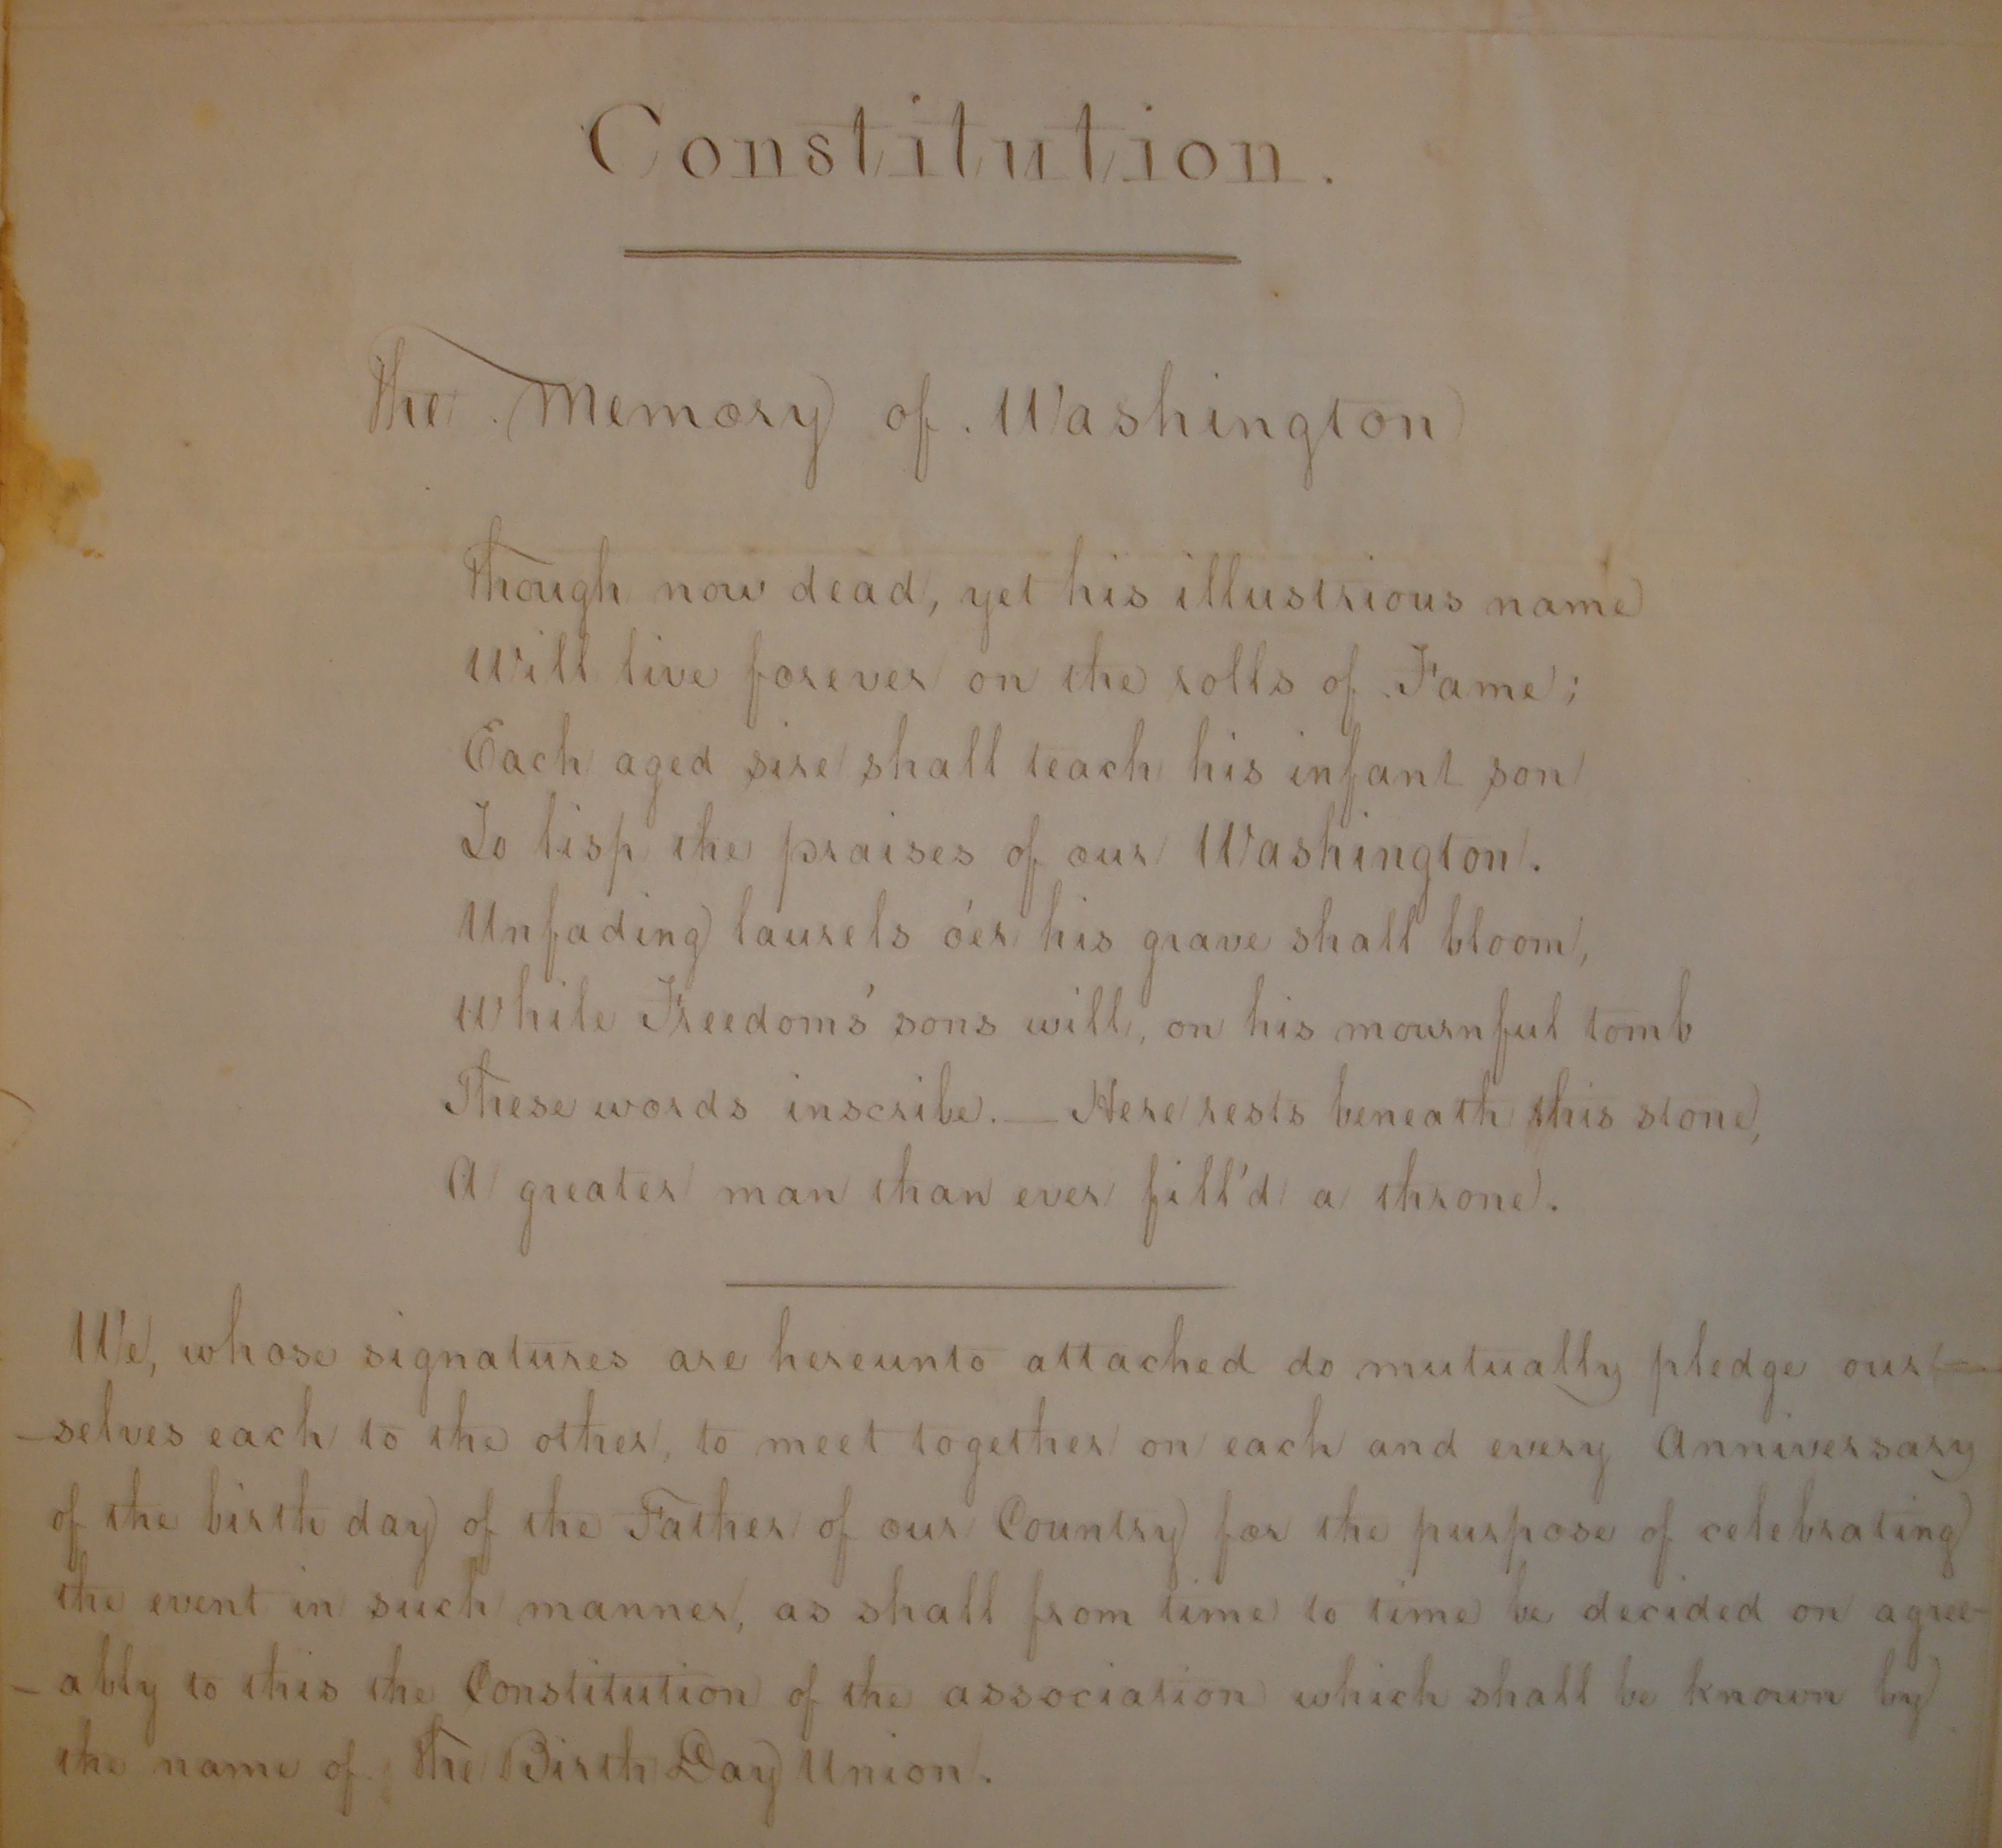 Constitution.
The Memory of Washington
Though now dead, yet his illustrious name
Will live forever on the rolls of Fame;
Each aged sire shall teach his infant son
To lisp the praises of our Washington.
Unfading laurels o'er his grave shall bloom,
While Freedoms' sons will, on his mournful tomb
These words inscribe. — Here rests beneath this stone,
A greater man than ever fill'd a throne.
We, whose signatures are hereunto attached do mutually pledge our-
-selves each to the other, to meet together on each and every Anniversary
of the birth day of the Father of our Country for the purpose of celebrating
the event in such manner, as shall from time to time be decided on agree-
-ably to this the Constitution of the association which shall be known by
the name of The Birth Day Union.